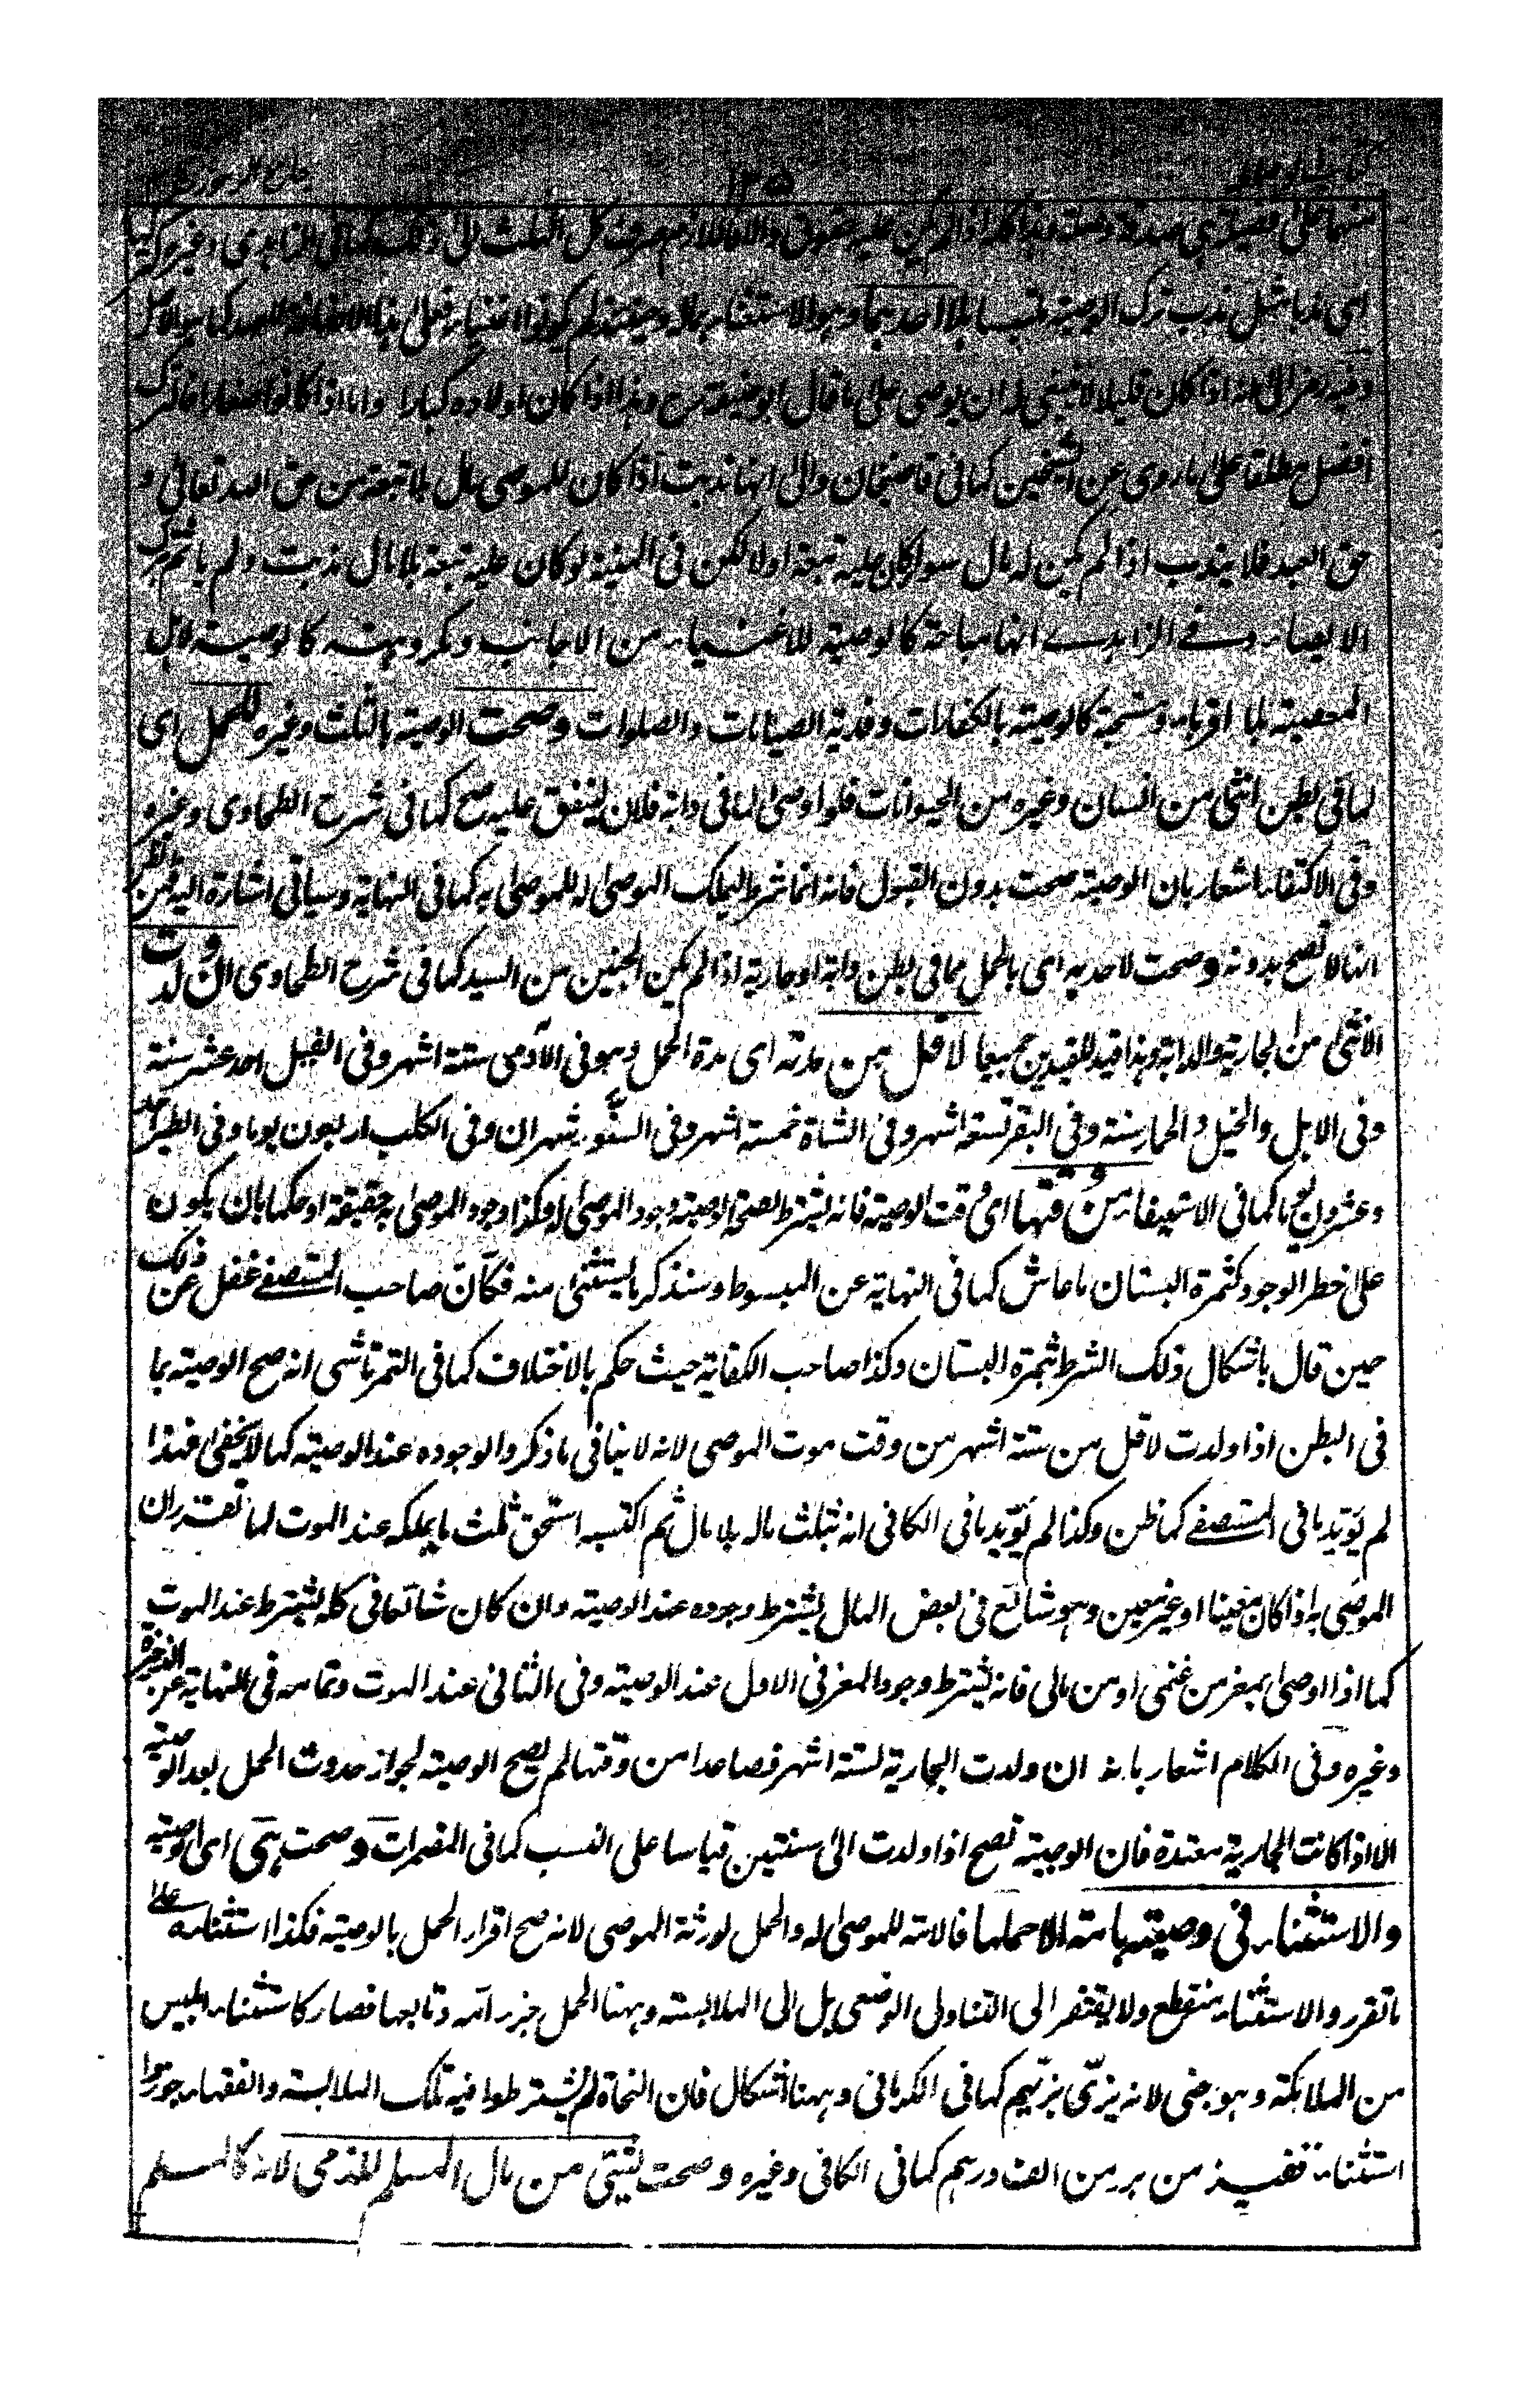 كتاب الوصايا
جامع الرموز
اى ندبا مثل ندب ترك الوصية بلا احدهما وهو الاستثناء
وفيه رمز الى انه اذا كان قليلا لا ينبغى له ان يوصى على ما قال ابو حنيفة رح وهذا اذا كان اولاده كبارا واما اذا كانوا صغارا فالترك
افضل مطلقا على ما روى عن الشيخين كما فى قاضيخان والى انها ندبت اذا كان للموصى مال بلا تبعة من حق الله تعالى و
حق العبد فلا يندب اذا لم يكن له مال سواء كان عليه تبعة اولا لكن فى المنية لو كان عليه تبعة بلا مال ندبت ولم ياثم بترك
الايصاء وفى الزاهدى انها مباحة كالوصية للاغنياء من الاجانب ومكروهة كالوصية لاهل
المعصية بلا اقرباء ومستحبة كالوصية بالكفارات وفدية الصيامات والصلوات وصحت الوصية بالثلث وغيره للحمل اى
لما فى بطن انثى من انسان وغيره من الحيوانات فلو اوصى لما فى دابة فلان لينفق عليه صح كما فى شرح الطحاوى وغيره
وفى الاكتفاء اشعار بان الوصية صحت بدون القبول فانه انما شرط ليملك الموصى له للموصى به كما فى النهاية وسياتى اشارة اليه فمن الظن
انها لا تصح بدونه وصحت لاحد به اى بالحمل مما فى بطن دابة او جارية اذا لم يكن الجنين من السيد كما فى شرح الطحاوى ان ولدت
الانثى من الجارية والدابة وهذا قيد للقيدين جميعا لاقل من مدته اى مدة الحمل وهو فى الآدمى ستة اشهر وفى الفيل احد عشر سنة
وفى الابل والخيل والحمار سنة وفى البقر تسعة اشهر وفى الشاة خمسة اشهر وفى السنور شهران وفى الكلب اربعون يوما وفى الطير احد
وعشرون يوما كما فى الاستيفاء من وقتها اى وقت الوصية فانه يشترط لصحة الوصية وجود الموصى له وكذا وجود الموصى به حقيقة او حكما بان يكون
على خطر الوجود كثمرة البستان ما عاش كما فى النهاية عن المبسوط وسنذكر ما يستثنى منه فكأن صاحب المستصفى غفل عن ذلك
حين قال باشكال ذلك الشرط بثمرة البستان وكذا صاحب الكفاية حيث حكم بالاختلاف كما فى التمرتاشى انه صح الوصية بما
فى البطن اذا ولدت لاقل من ستة اشهر من وقت موت الموصى لانه لا ينافى ما ذكروا لوجوده عند الوصية كما لا يخفى فهذا
لم يؤيد ما فى المستصفى كما ظن وكذا لم يؤيد ما فى الكافى انه بثلث ماله بلا مال ثم اكتسبه استحق ثلث ما يملكه عند الموت لما تقرر ان
الموصى به اذا كان معينا او غير معين وهو شائع فى بعض المال يشترط وجوده عند الوصية وان كان شائعا فى كله يشترط عند الموت
كما اذا اوصى بمعز من غنمى او من مالى فانه يشترط وجود المعز فى الاول عند الوصية وفى الثانى عند الموت وتمامه فى النهاية عن الذخيرة
وغيره وفى الكلام اشعار بانه ان ولدت الجارية لستة اشهر فصاعدا من وقتها لم يصح الوصية لجواز حدوث الحمل بعد الوصية
الا اذا كانت الجارية معتدة فان الوصية تصح اذا ولدت الى سنتين قياسا على النسب كما فى المضمرات وصحت هى اى الوصية
والاستثناء فى وصيته بامة الا حملها فالامة للموصى له والحمل لورثة الموصى لانه صح اقرار الحمل بالوصية فكذا استثناءه على
ما تقرر والاستثناء منقطع ولا يفتقر الى التناول الوضعى بل الى الملابسة وههنا الحمل جزء امه وتابعها فصار كاستثناء ابليس
من الملائكة وهو جنى لانه يزيّ بزيهم كما فى الكرمانى وههنا اشكال فان النحاة لم يشترطوا فيه تلك الملابسة والفقهاء جوزوا
استثناء قفيز من بر من الف درهم كما فى الكافى وغيره وصحت لشئ من مال المسلم للذمى لانه كالمسلم